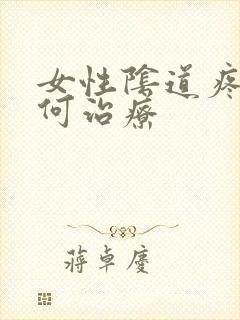 女性陰道疼
何治療
蔣卓慶